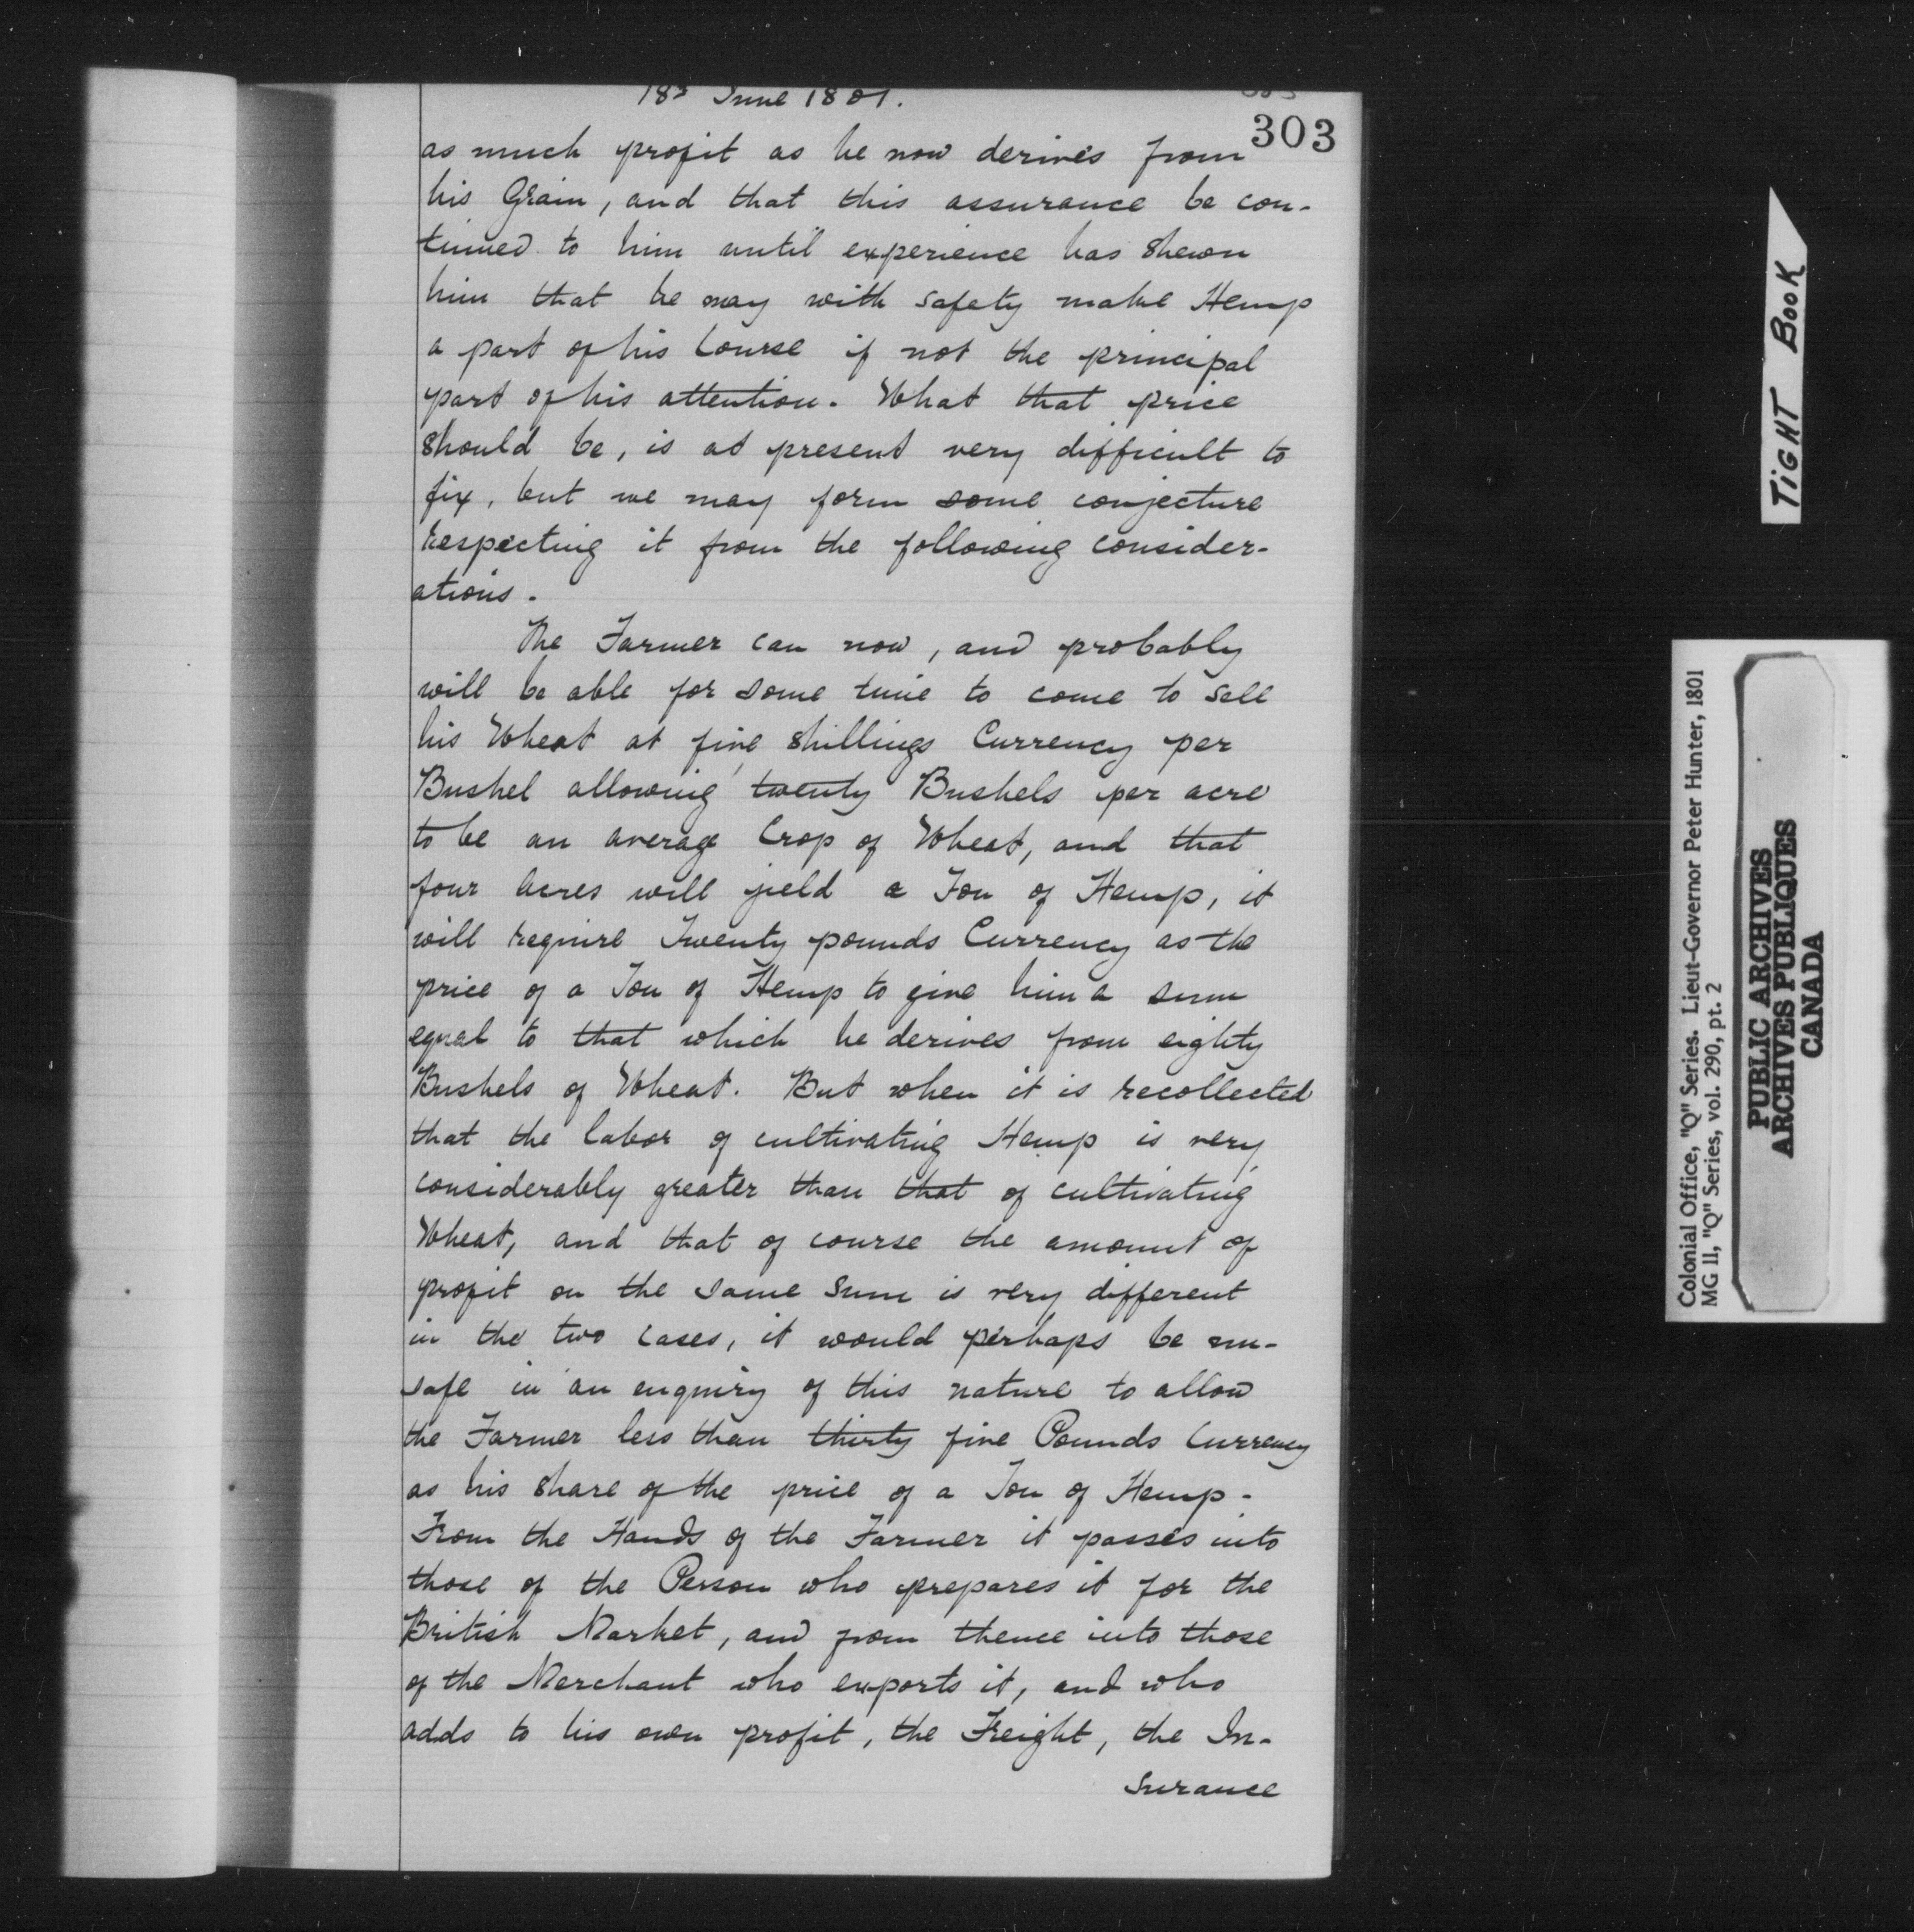 18th June 1801.
303
as much profit as he now derives from
his Grain, and that this assurance be con-
tinued to him until experience has shewn
him that he may with safety make Hemp
a part of his Course if not the principal
part of his attention. What that price
should be, is at present very difficult to
fix, but we may form some conjecture
respecting it from the following consider-
ations.
The Farmer can now, and probably
will be able for some time to come to sell
his Wheat at five shillings Currency per
Bushel allowing twenty Bushels per acre
to be an average Crop of Wheat, and that
four acres will yield a Ton of Hemp, it
will require Twenty pounds Currency as the
price of a Ton of Hemp to give him a sum
equal to that which he derives from eighty
Bushels of Wheat. But when it is recollected
that the labor of cultivating Hemp is very
considerably greater than that of cultivating
Wheat, and that of course the amount of
profit on the same sum is very different
in the two cases, it would perhaps be un-
safe in an enquiry of this nature to allow
the Farmer less than thirty five Pounds Currency
as his share of the price of a Ton of Hemp.
From the Hands of the Farmer it passes into
those of the Person who prepares it for the
British Market, and from thence into those
of the Merchant who exports it, and who
adds to his own profit, the Freight, the In-
surance
TIGHT BOOK
Colonial Office, "Q" Series. Lieut-Governor Peter Hunter, 1801
MG 11, "Q" Series, vol. 290, pt. 2
PUBLIC ARCHIVES
ARCHIVES PUBLIQUES
CANADA